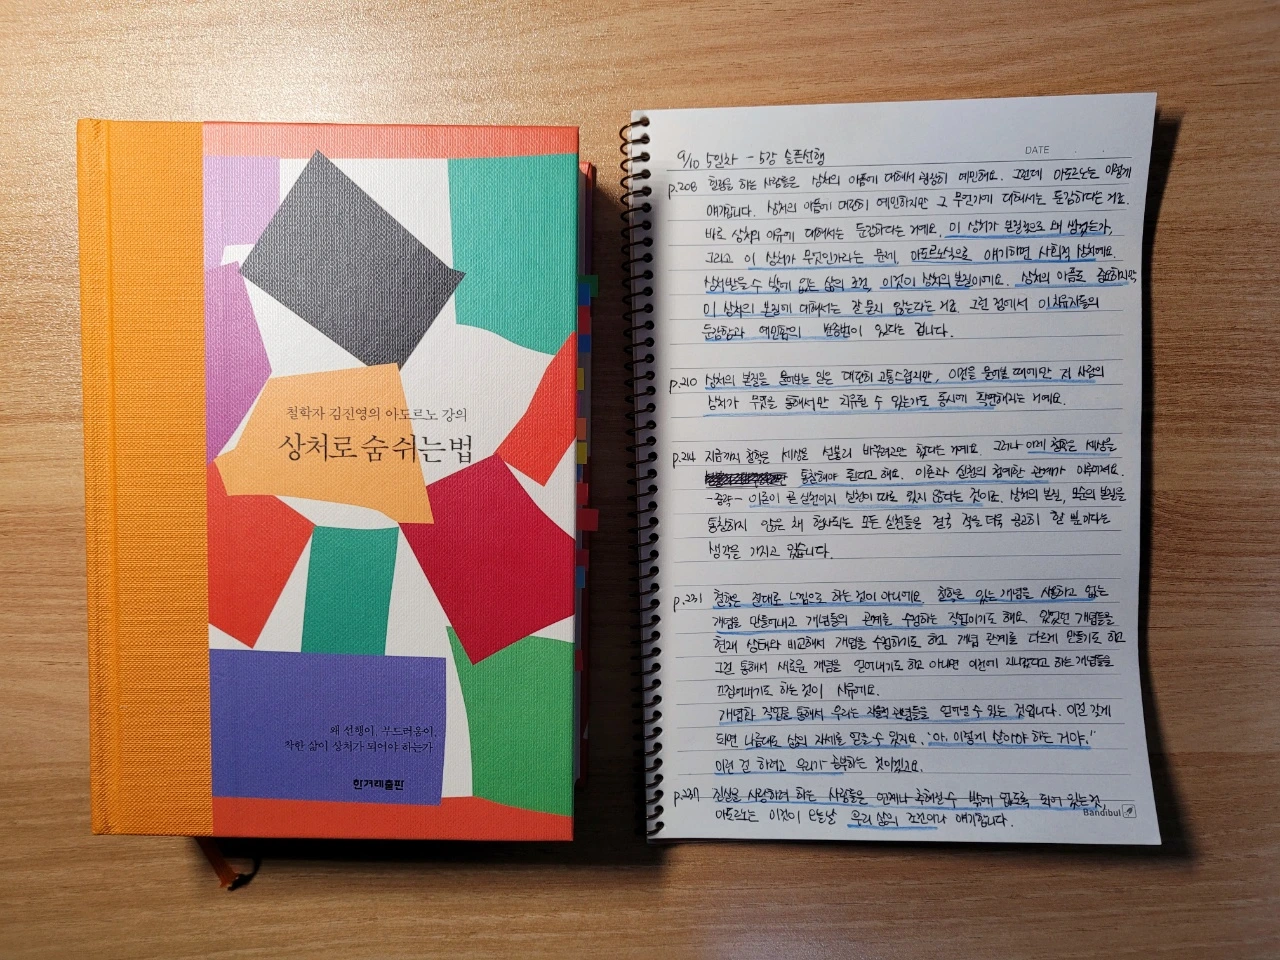 철학자 김진영의 아도르노 강의
상처로 숨 쉬는 법
왜 선행이, 부드러움이,
착한 삶이 상처가 되어야 하는가
한겨레출판
DATE
9/10 5일차 - 5강 슬픈선행
p.208 힐링을 하는 사람들은 상처의 아픔에 대해서 굉장히 예민해요. 그런데 아도르노는 이렇게
얘기합니다. 상처의 아픔에 대단히 예민하지만 그 무언가에 대해서는 둔감하다는 거죠.
바로 상처의 이유에 대해서는 둔감하다는 거예요. 이 상처가 본질적으로 왜 생겼는가,
그리고 이 상처가 무엇인가라는 문제, 아도르노식으로 얘기하면 사회적 상처예요.
상처받을 수 밖에 없는 삶의 조건, 이것이 상처의 본질이에요. 상처의 아픔도 중요하지만
이 상처의 본질에 대해서는 잘 묻지 않는다는 거죠. 그런 점에서 이 치유자들의
둔감함과 예민함의 변증법이 있다는 겁니다.
p.210 상처의 본질을 물어보는 일은 대단히 고통스럽지만, 이것을 물어볼 때에만 저 사람의
상처가 무엇을 통해서만 치유될 수 있는가도 동시에 직면해지는 거예요.
p.214 지금까지 철학은 세상을 섣불리 바꾸려고만 했다는 거예요. 그러나 이제 철학은 세상을
통찰해야 된다고 해요. 이론과 실천의 첨예한 관계가 이루어져요.
-중략- 이론이 곧 실천이지 실천이 따로 있지 않다는 것이죠. 상처의 본질, 모순의 본질을
통찰하지 않은 채 행사되는 모든 실천들은 결국 적을 더욱 공고히 할 뿐이라는
생각을 가지고 있습니다.
p.231 철학은 절대로 느낌으로 하는 것이 아니에요 철학은 있는 개념을 사용하고 없는
개념을 만들어내고 개념들의 관계를 수립하는 작업이기도 해요. 있었던 개념들을
현재 상태와 비교해서 개념을 수립하기도 하고 개념 관계를 다르게 만들기도 하고
그걸 통해서 새로운 개념을 얻어내기도 하고 아니면 이전에 지나갔다고 하는 개념들을
끄집어내기도 하는 것이 사유예요.
개념화 작업을 통해서 우리는 자율적 관념들을 얻어낼 수 있는 것입니다. 이런 것이
되면 나름대로 삶의 자세를 얻을 수 있지요. "아, 이렇게 살아야 하는 거야."
이런 걸 하려고 우리가 공부하는 것이겠고요.
p.237 진실을 사랑하려 하는 사람들은 언제나 추해질 수 밖에 없도록 되어 있는 것,
아도르노는 이것이 오늘날 우리 삶의 조건이라 얘기합니다.
Bandibul